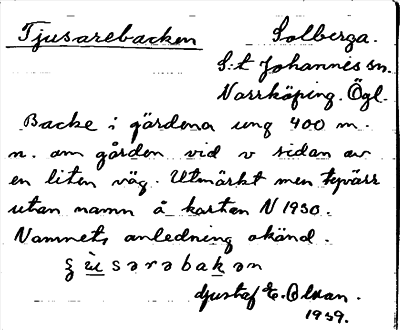 Tjusarebacken Solberga.
S:t Johannes sn.
Norrköping. Ögl.
Backe i gärdena ung 400 m.
n. om gården vid v sidan av
en liten väg. Utmärkt men tyvärr
utan namn å kartan N 1930.
Namnets anledning okänd.
ʒ ùsarabakan
Gustaf E. Olsson.
1939.